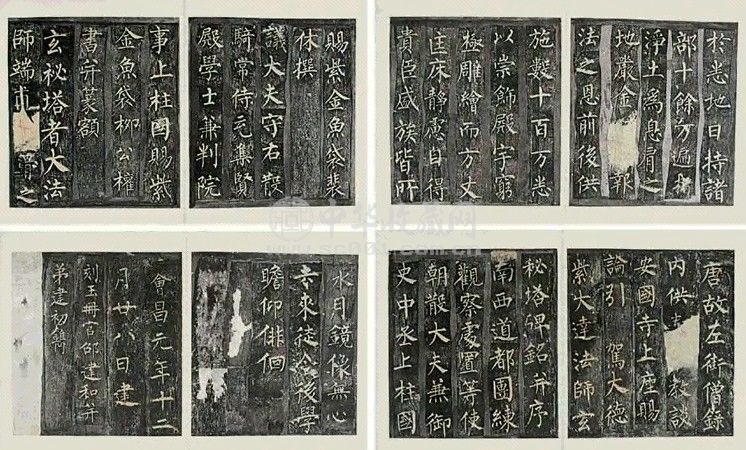 賜紫金魚袋裴
休撰
議大夫守右散
騎常侍充集賢
殿學士兼判院
事上柱國賜紫
金魚袋柳公權
書并篆額
玄秘塔者大法
師端甫骨之
於悉地日持諸
部十餘万遍指
淨土為息肩之
地嚴金報
法之恩前後供
施數十百万悉
以崇飾殿宇窮
極雕繪而方丈
匡床靜慮自得
貴臣盛族皆所
水月鏡像無心
去來徒令後學
瞻仰俳佪
會昌元年十二
月廿八日建
刻玉冊官邵建和并
弟建初鐫
唐故左街僧錄
內供教談
安國寺上座賜
論引駕大德
紫大達法師玄
秘塔碑銘并序
南西道都團練
觀察處置等使
朝散大夫兼御
史中丞上柱國
中华收藏网